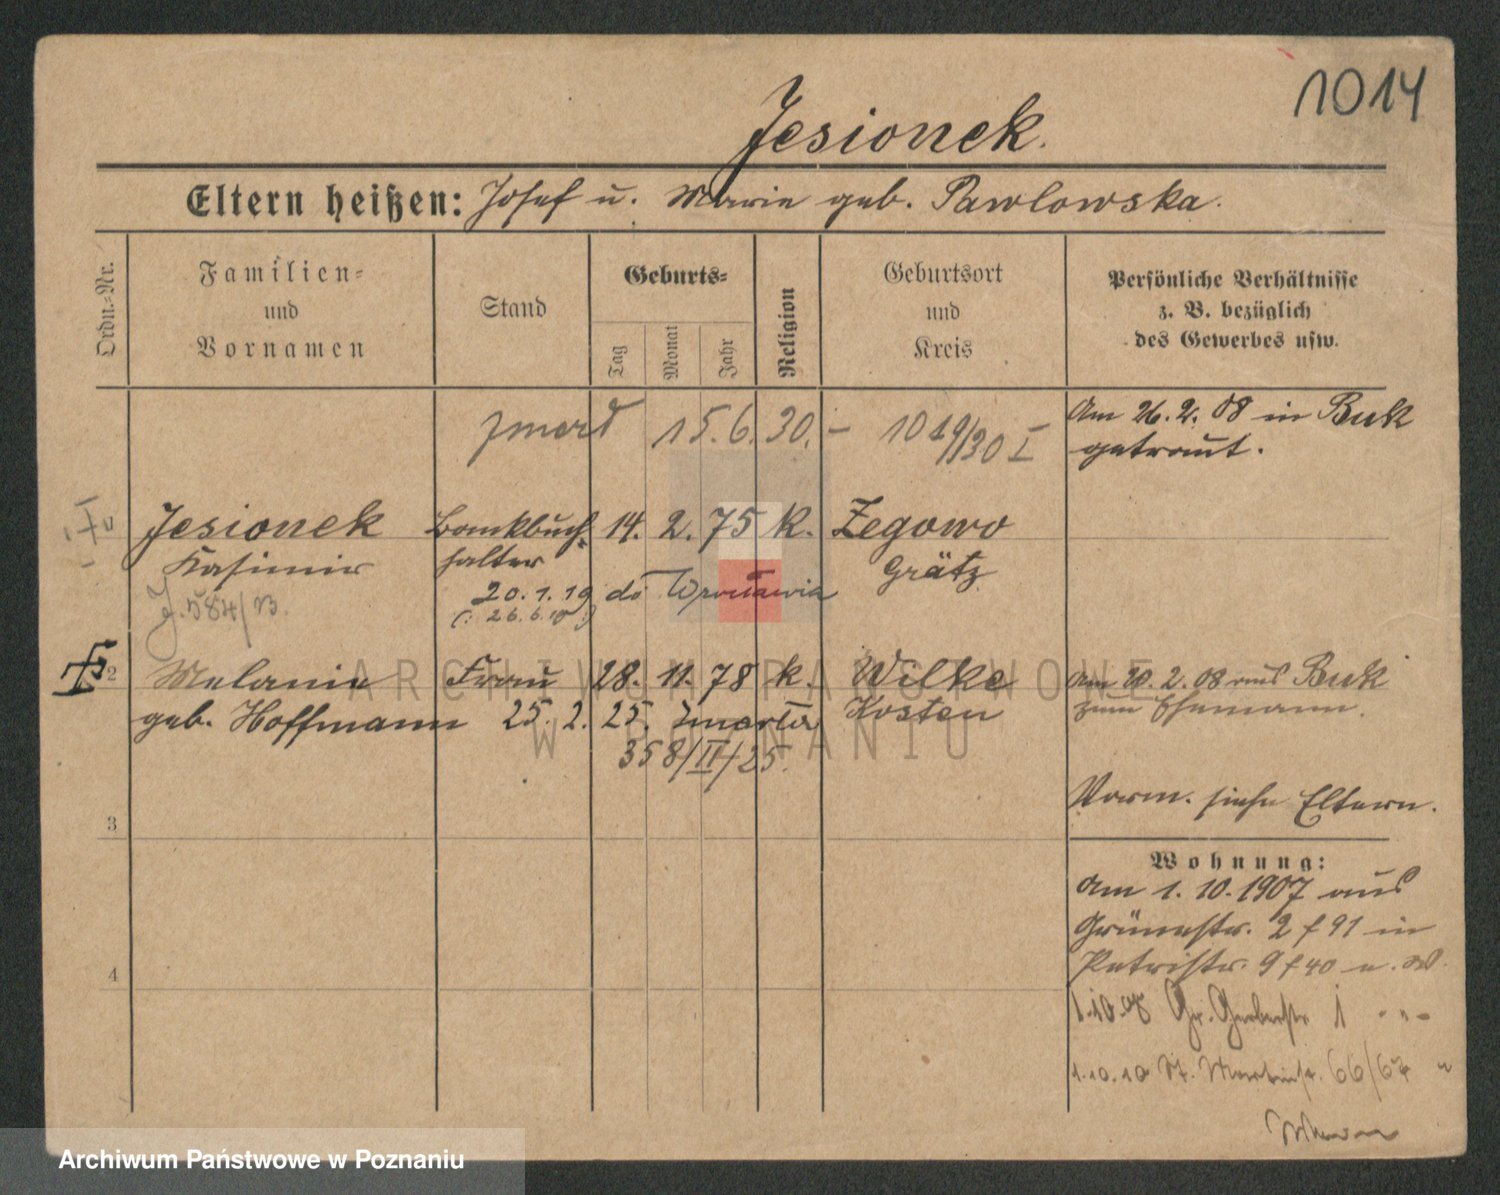 1014
Jesionek.
Eltern heißen: Josef u. Marie geb. Pawlowska.
Ordn.-Nr.
Familien-
und
Vornamen
Stand
Geburts-
Tag
Monat
Jahr
Religion
Geburtsort
und
Kreis
Persönliche Verhältnisse
z. B. bezüglich
des Gewerbes usw.
zmarł 15.6.30. - 1019/30 I
Am 26.2.08 in Buk
getraut.
Jesionek Bankbuch- 14. 2. 75 k. Zegowo
Kasimir halter Grätz
20.1.19 do Wrocławia
J. 584/
2 Melanie Frau 28. 11. 78 k. Wilke
geb. Hoffmann 25. 2. 25. zmarła Kosten
358/II/25.
Am 20.2.08 aus Buk
zum Ehemann.
Vorm. siehe Eltern.
3
Wohnung:
Am 1.10.1907 aus
Grünestr. 2 f 91 in
Petristr. 9 f 40 u. W.
4
1.10.08 Gr. Gerberstr 1 " "
1.10.10 St. Martinstr. 66/67 "
ARCHIWUM PAŃSTWOWE
W POZNANIU
Archiwum Państwowe w Poznaniu